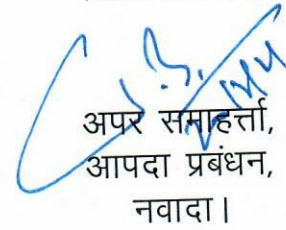 अपर समाहर्त्ता,
आपदा प्रबंधन,
नवादा।